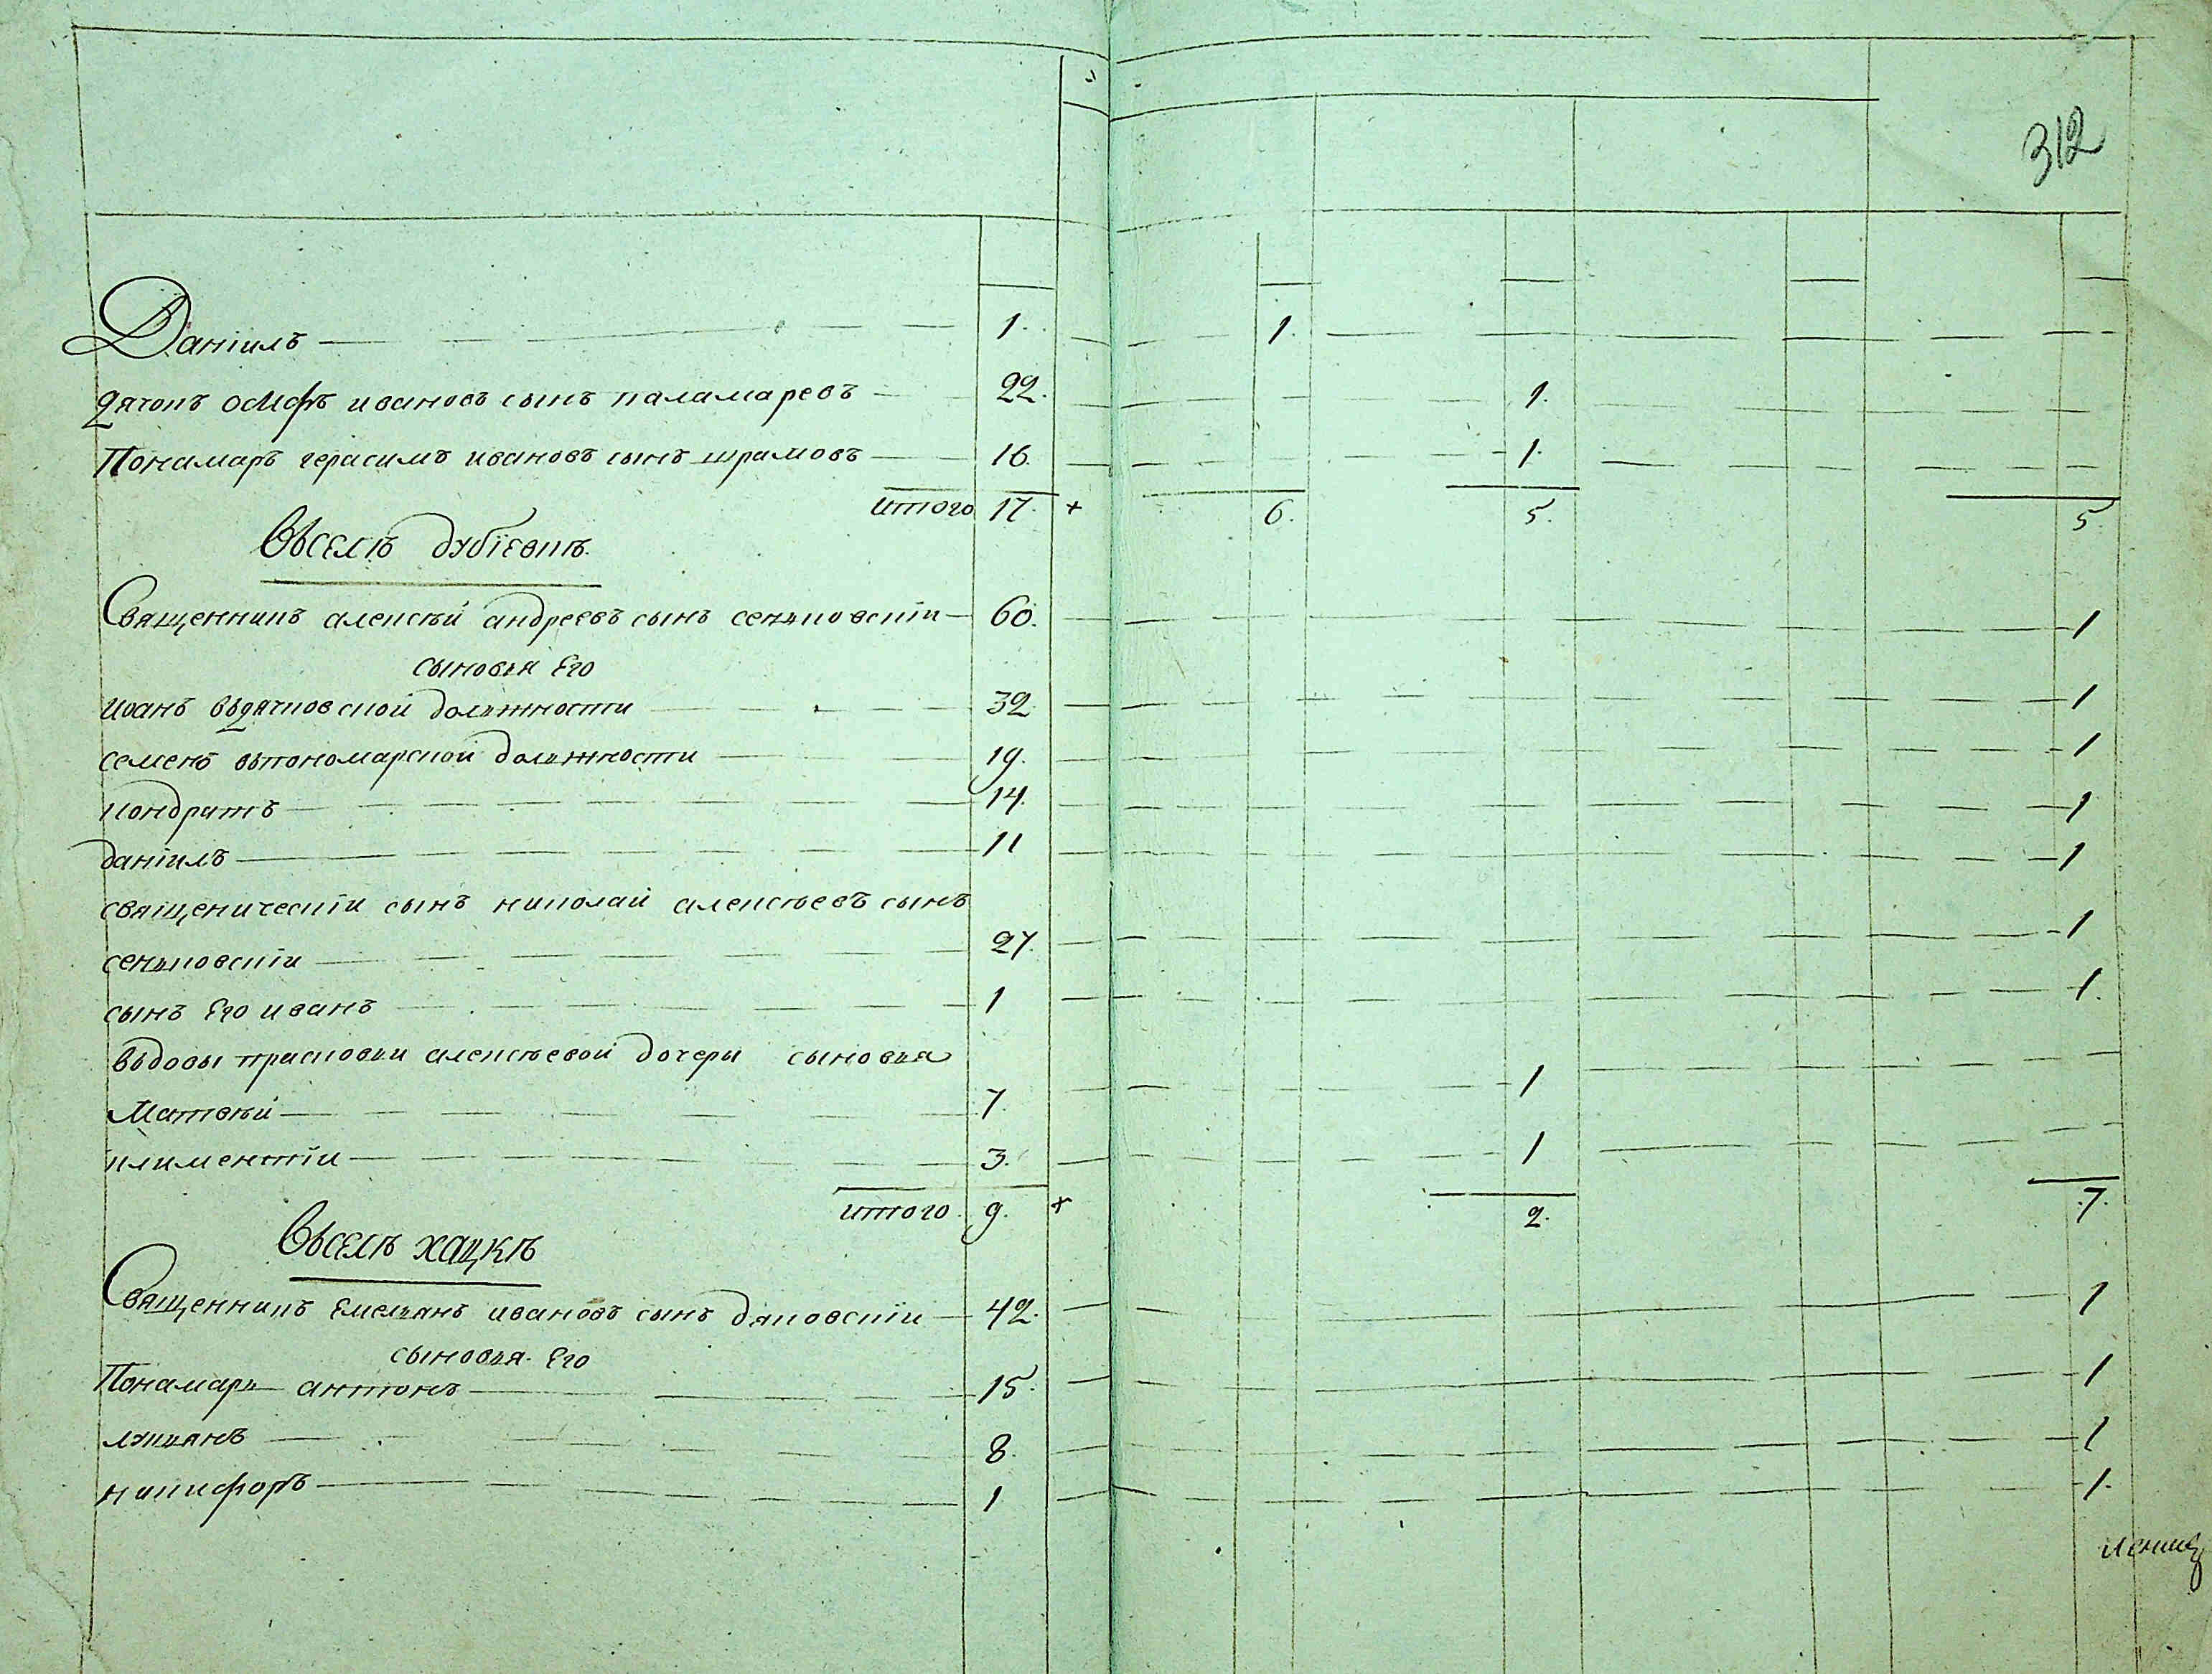 312
Данїилъ — 1. 1.
дячокъ осифъ ивановъ сынъ паламаревъ — 22. 1.
Понамаръ герасимъ ивановъ сынъ шрамовъ — 16. 1.
итого 17. + 6. 5. 5.
Въселѣ дубїевкѣ.
Священникъ алексѣй андреевъ сынъ сеньковскїи — 60. 1
сыновья Его
иванъ въдячковской должности — 32 1
семенъ въпономарской должности — 19. 1
кондратъ — 14. 1
данїилъ — 11 1
священическїи сынъ николай алексѣевъ сынъ
сеньковскїи — 27. 1
сынъ Его иванъ — 1 1.
вьдовы прасковьи алексѣевой дочери сыновья
Матвѣй — 7. 1
климентїи — 3. 1
итого 9. + 2. 7.
Въселѣ хацкѣ
Священникъ Емельянъ ивановъ сынъ дяковскїи — 42. 1
сыновья Его
Понамарь антонъ — 15. 1
лукьянъ — 8. 1
никифоръ — 1 1.